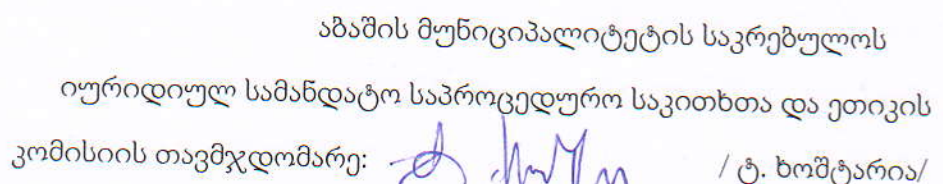 აბაშის მუნიციპალიტეტის საკრებულოს
იურიდიულ სამანდატო საპროცედურო საკითხთა და ეთიკის
კომისიის თავმჯდომარე: / ტ. ხოშტარია/